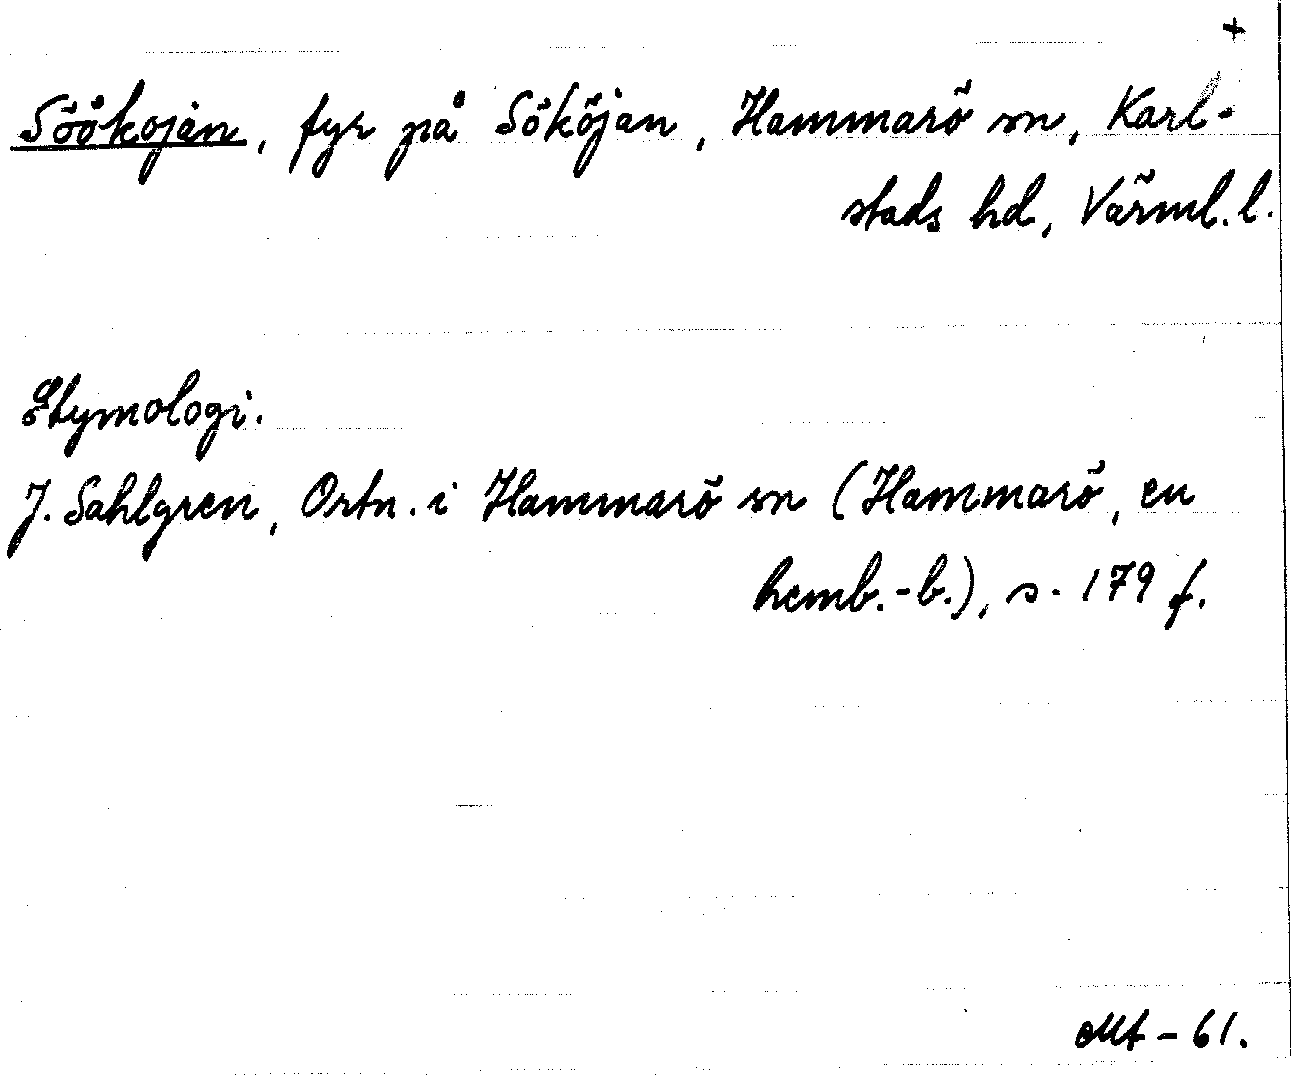 +
Söåkojan, fyr på Sököjan, Hammarö sn, Karl-
stads hd, Värml. l.
Etymologi.
J. Sahlgren, Ortn. i Hammarö sn (Hammarö, en
hemb.-b.), s. 179 f.
Mt - 61.